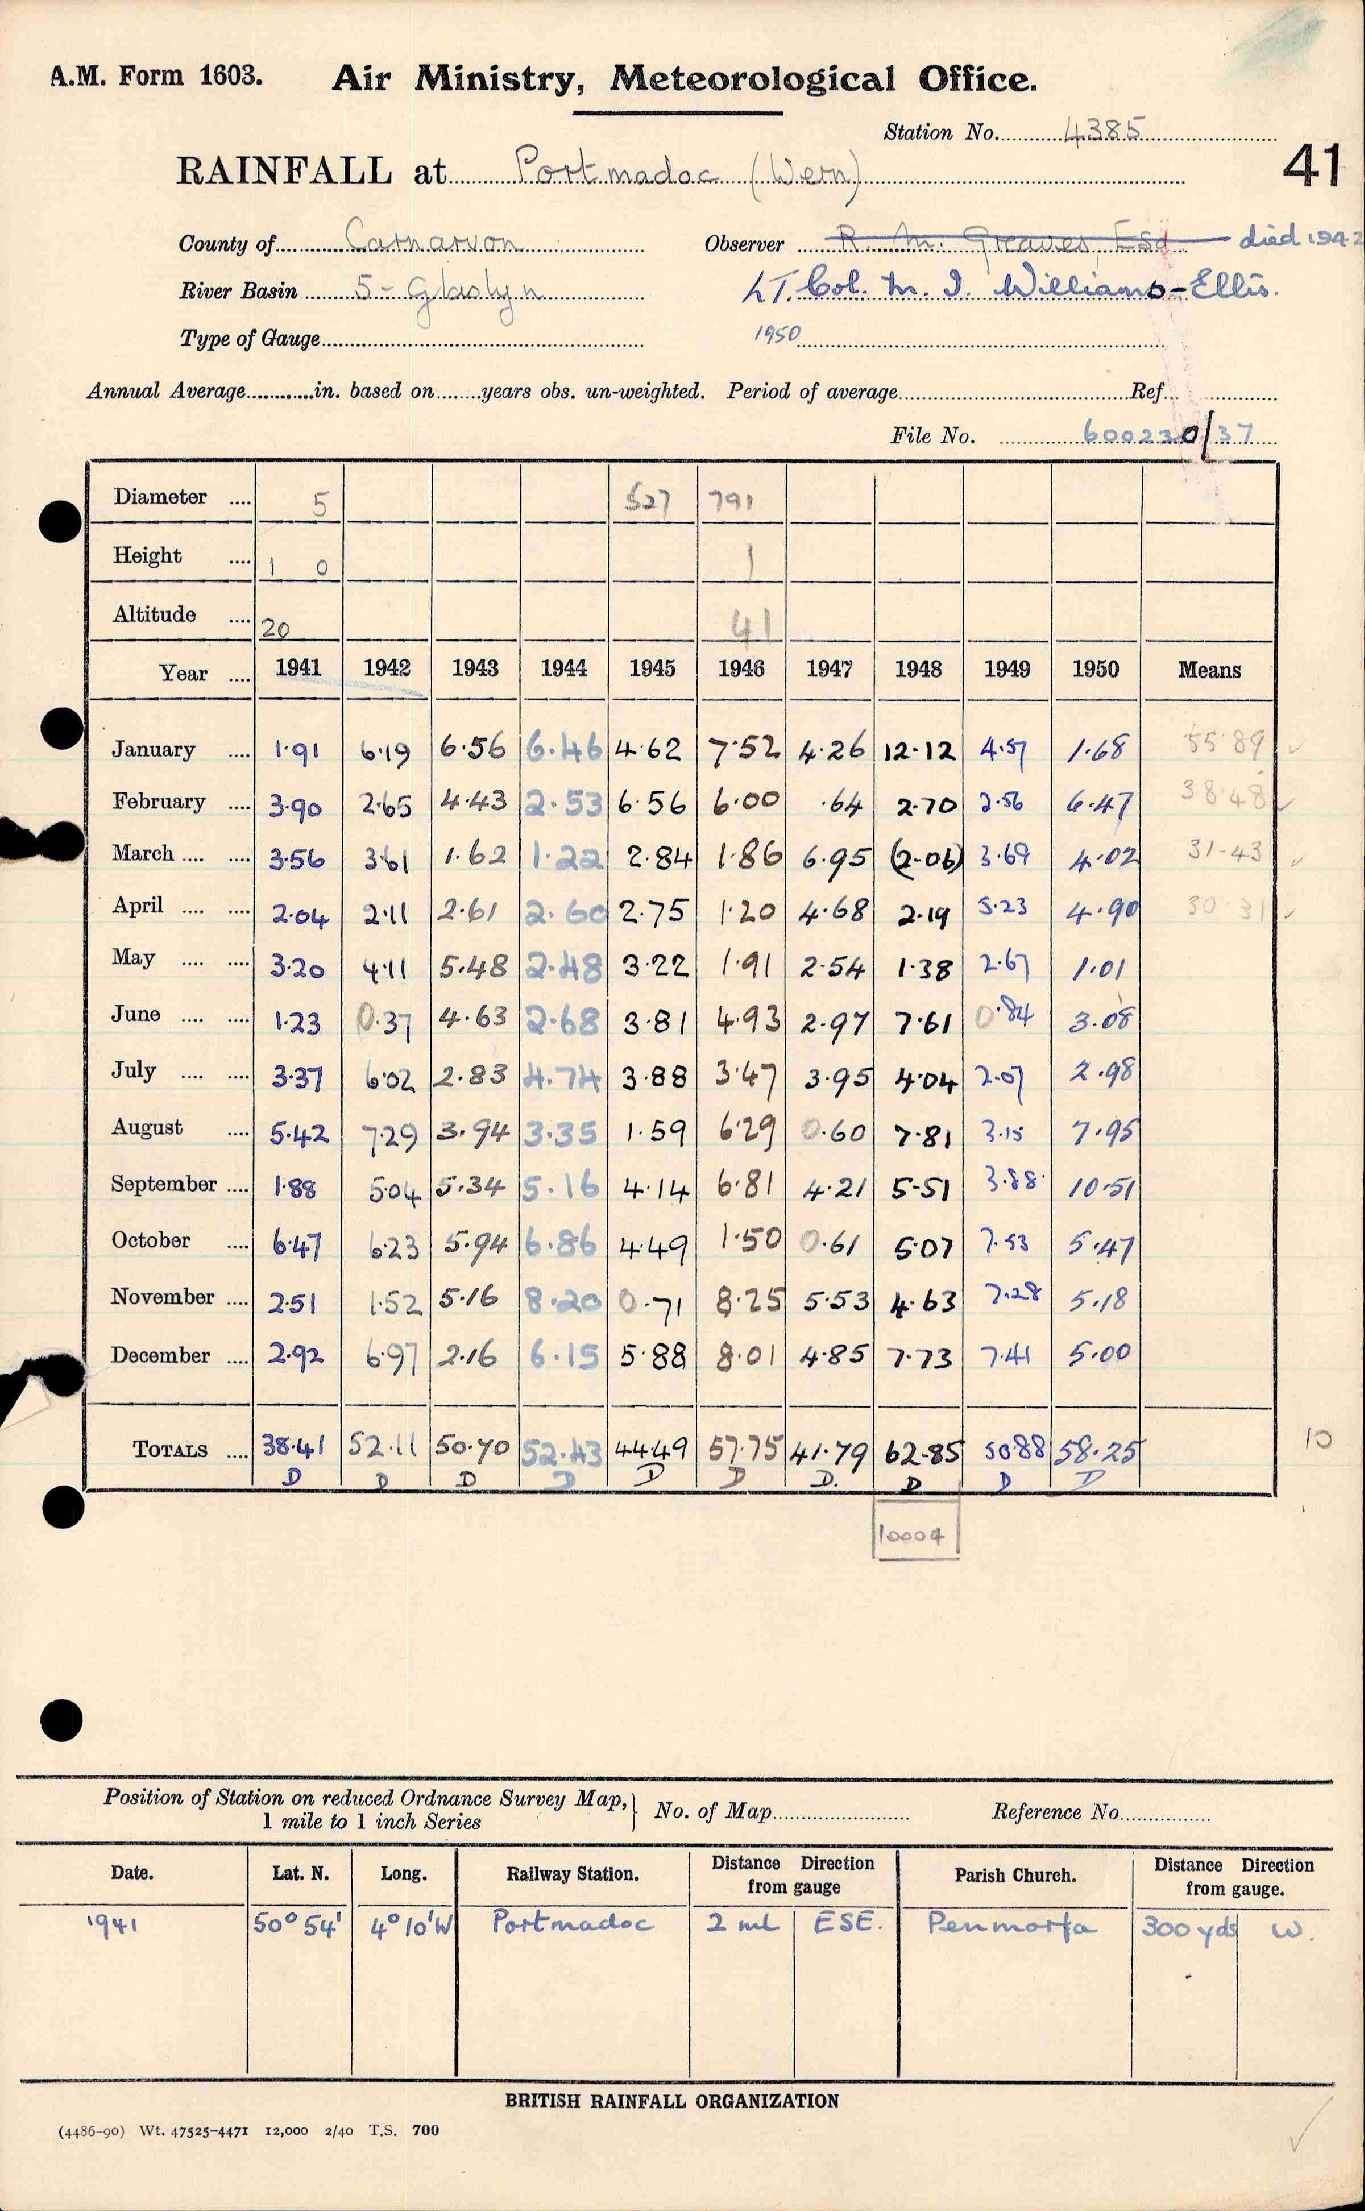 A.M. Form 1603. Air Ministry, Meteorological Office.
Station No. 4385
41
RAINFALL at Portmadoc (Wern)
County of Carnarvon Observer R. M. Greaves Esq died 1942
River Basin 5 - Glaslyn LT. Col. M. I. Williams-Ellis.
Type of Gauge 1950
Annual Average in. based on years obs. un-weighted. Period of average Ref.
File No. 600230/37
Diameter .... 5 527 791
Height .... 1 0 1
Altitude .... 20 41
Year .... 1941 1942 1943 1944 1945 1946 1947 1948 1949 1950 Means
January .... 1.91 6.19 6.56 6.46 4.62 7.52 4.26 12.12 4.57 1.68 55.89 ✓
February .... 3.90 2.65 4.43 2.53 6.56 6.00 .64 2.70 2.56 6.47 38.48 ✓
March .... .... 3.56 3.61 1.62 1.22 2.84 1.86 6.95 (2.06) 3.69 4.02 31.43 ✓
April .... .... 2.04 2.11 2.61 2.60 2.75 1.20 4.68 2.19 5.23 4.90 30.31 ✓
May .... .... 3.20 4.11 5.48 2.48 3.22 1.91 2.54 1.38 2.67 1.01
June .... .... 1.23 0.37 4.63 2.68 3.81 4.93 2.97 7.61 0.84 3.08
July .... .... 3.37 6.02 2.83 4.74 3.88 3.47 3.95 4.04 2.07 2.98
August .... 5.42 7.29 3.94 3.35 1.59 6.29 0.60 7.81 3.15 7.95
September .... 1.88 5.04 5.34 5.16 4.14 6.81 4.21 5.51 3.88 10.51
October .... 6.47 6.23 5.94 6.86 4.49 1.50 0.61 5.07 7.53 5.47
November .... 2.51 1.52 5.16 8.20 0.71 8.25 5.53 4.63 7.28 5.18
December .... 2.92 6.97 2.16 6.15 5.88 8.01 4.85 7.73 7.41 5.00
TOTALS .... 38.41 52.11 50.70 52.43 44.49 57.75 41.79 62.85 50.88 58.25 10
D D D D D D D. D D D
10004
Position of Station on reduced Ordnance Survey Map, No. of Map Reference No.
1 mile to 1 inch Series
Date. Lat. N. Long. Railway Station. Distance Direction from gauge Parish Church. Distance Direction from gauge.
1941 50° 54' 4° 10' W Portmadoc 2 ml ESE. Penmorfa 300 yds W.
BRITISH RAINFALL ORGANIZATION
(4486-90) Wt. 47525-4471 12,000 2/40 T.S. 700